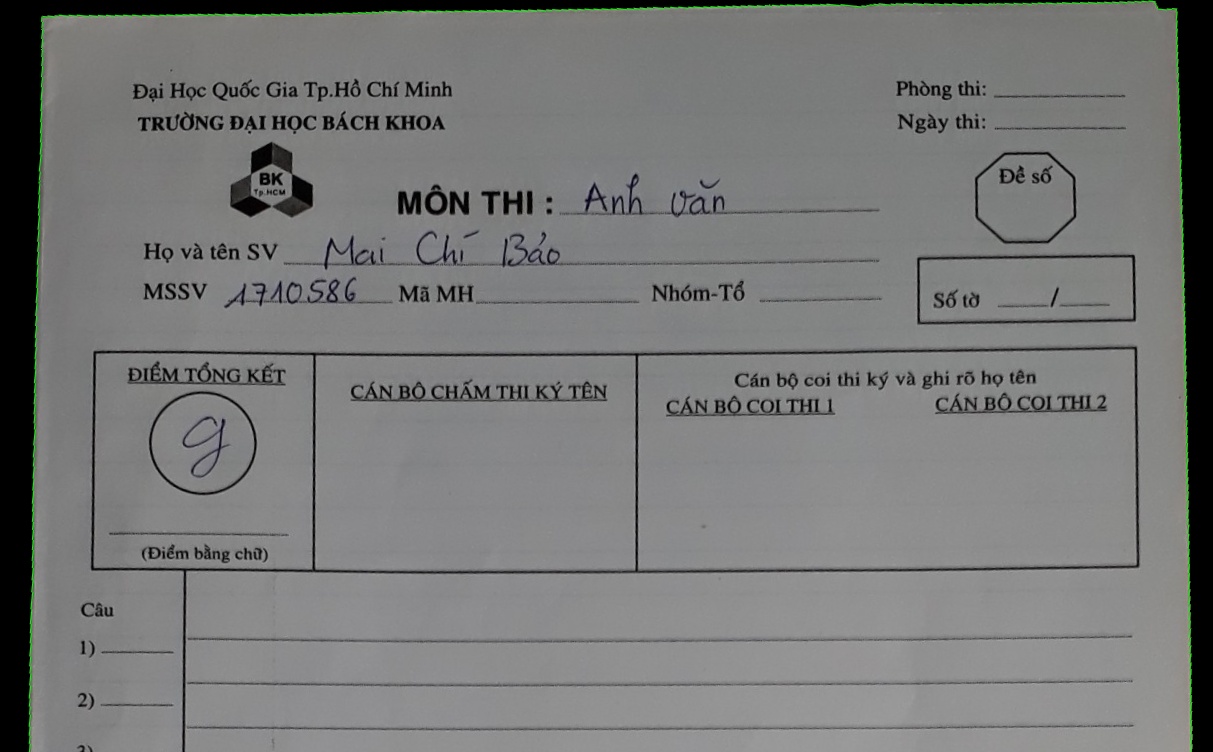 Đại Học Quốc Gia Tp.Hồ Chí Minh
TRƯỜNG ĐẠI HỌC BÁCH KHOA
Phòng thi:
Ngày thi:
BK
Tp.HCM
MÔN THI : Anh văn
Đề số
Họ và tên SV Mai Chí Bảo
MSSV 1710586 Mã MH Nhóm-Tổ
Số tờ /
ĐIỂM TỔNG KẾT
9
(Điểm bằng chữ)
CÁN BỘ CHẤM THI KÝ TÊN
Cán bộ coi thi ký và ghi rõ họ tên
CÁN BỘ COI THI 1 CÁN BỘ COI THI 2
Câu
1)
2)
3)